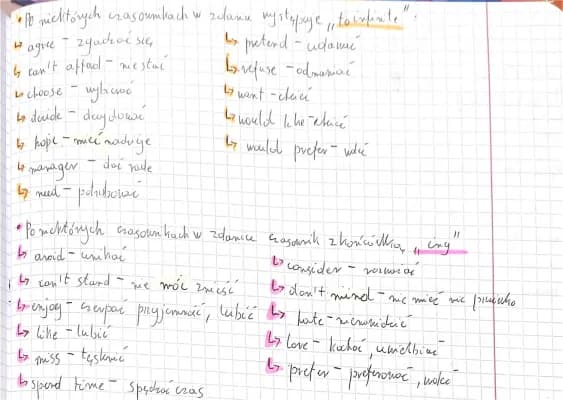 • Po niektórych czasownikach w zdaniu występuje „to infinite".
↳ agree - zgadzać się
↳ can't affad - nie stać
↳ choose - wybierać
↳ decide - decydować
↳ hope - mieć nadzieje
↳ manager - dać rade
↳ need - potrzebować
↳ pretend - udawać
↳ refuse - odmawiać
↳ want - chcieć
↳ would like - chcieć
↳ would prefer - woleć
• Po niektórych czasownikach w zdaniu czasownik z końcówką „ing"
↳ avoid - unikać
↳ can't stand - nie móc znieść
↳ enjoy - czerpać przyjemność, lubić
↳ like - lubić
↳ miss - tęsknić
↳ spend time - spędzać czas
↳ consider - rozważać
↳ don't mind - nie mieć nic przeciwko
↳ hate - nienawidzić
↳ love - kochać, uwielbiać
↳ prefer - preferować, woleć